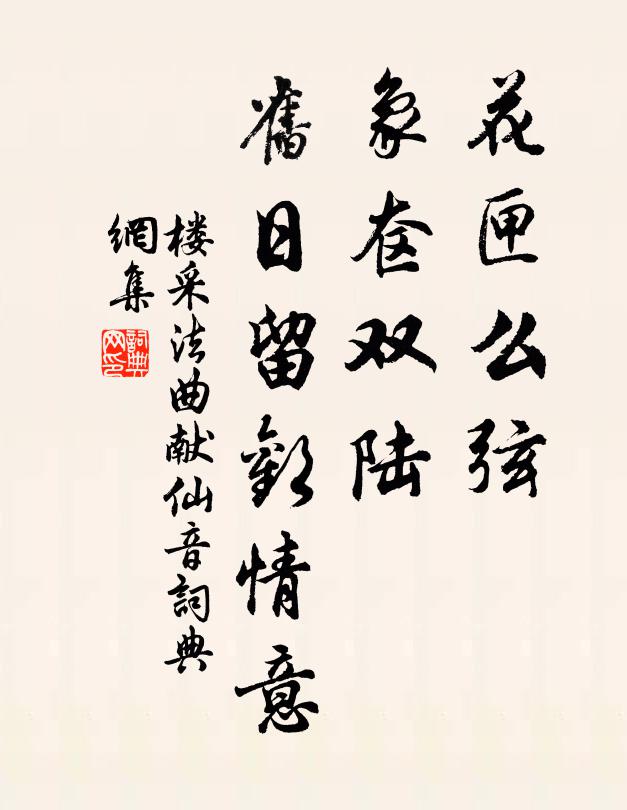 花匣么弦
象奁双陆
舊日留歡情意
楼采法曲献仙音詞典
網集
詞典
网印